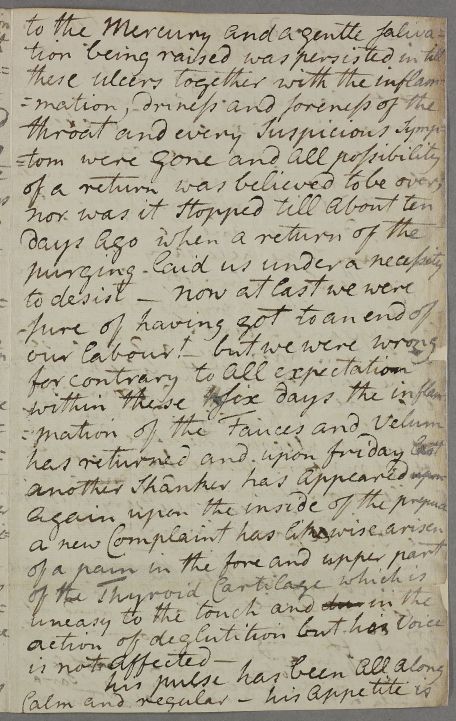 to the Mercury and a gentle saliva-
tion being raised was persisted in till
these ulcers together with the inflam-
=mation, driness and soreness of the
throat and every suspicious Symp-
=tom were gone and all possibility
of a return was believed to be over,
nor was it stopped till about ten
days ago when a return of the
purging laid us under a necessity
to desist – now at last we were
sure of having got to an end of
our labour! – but we were wrong
for contrary to all expectation
within these six days the inflam-
=mation of the Fauces and Velum
has returned and upon friday last
another Shanker has appeared
again upon the inside of the prepuce
a new Complaint has likewise arisen
of a pain in the fore and upper part
of the Thyroid Cartilage which is
uneasy to the touch and in the
action of deglutition but his Voice
is not affected –
his pulse has been all along
Calm and regular – his appetite is